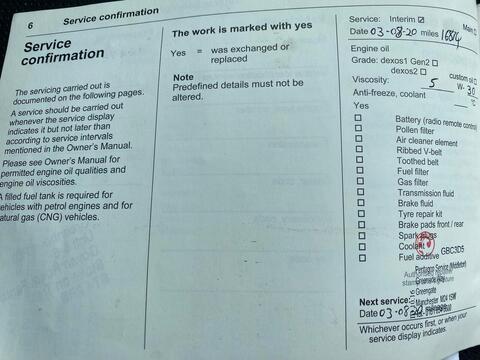 6 Service confirmation
Service
confirmation
The servicing carried out is
documented on the following pages.
A service should be carried out
whenever the service display
indicates it but not later than
according to service intervals
mentioned in the Owner's Manual.
Please see Owner's Manual for
permitted engine oil qualities and
engine oil viscosities.
A filled fuel tank is required for
vehicles with petrol engines and for
natural gas (CNG) vehicles.
The work is marked with yes
Yes = was exchanged or
replaced
Note
Predefined details must not be
altered.
Service: Interim ☑ Main
Date 03-08-20 miles 16814
Engine oil
Grade: dexos1 Gen2 ☐
dexos2 ☐ custom oil ☐
Viscosity: 5 W- 30
Anti-freeze, coolant °C
Yes
☐ Battery (radio remote control)
☐ Pollen filter
☐ Air cleaner element
☐ Ribbed V-belt
☐ Toothed belt
☐ Fuel filter
☐ Gas filter
☐ Transmission fluid
☐ Brake fluid
☐ Tyre repair kit
☐ Brake pads front / rear
☐ Spark plugs
☐ Coolant
☐ Fuel additive GBC3D5
Pentagon Service (Middleton)
Greengate
Manchester M24 1SW
Next service:
Date 03-08-21
Whichever occurs first, or when your
service display indicates.